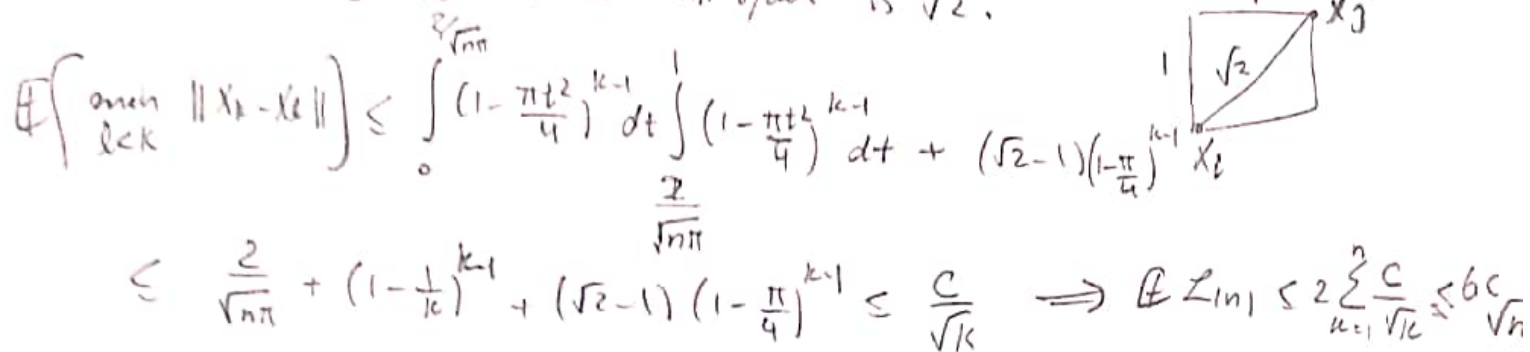 is √2.
E[ min_{l<k} ||X_k - X_l|| ] ≤ ∫_0^{2/√nπ} (1 - πt²/4)^{k-1} dt ∫_{2/√nπ}^1 (1 - πt²/4)^{k-1} dt + (√2 - 1)(1 - π/4)^{k-1}
1 √2 X_j X_l
≤ 2/√nπ + (1 - 1/k)^{k-1} + (√2 - 1)(1 - π/4)^{k-1} ≤ C/√k ⟹ E L_{(n)} ≤ 2 Σ_{k=1}^n C/√k ≤ 6C √n